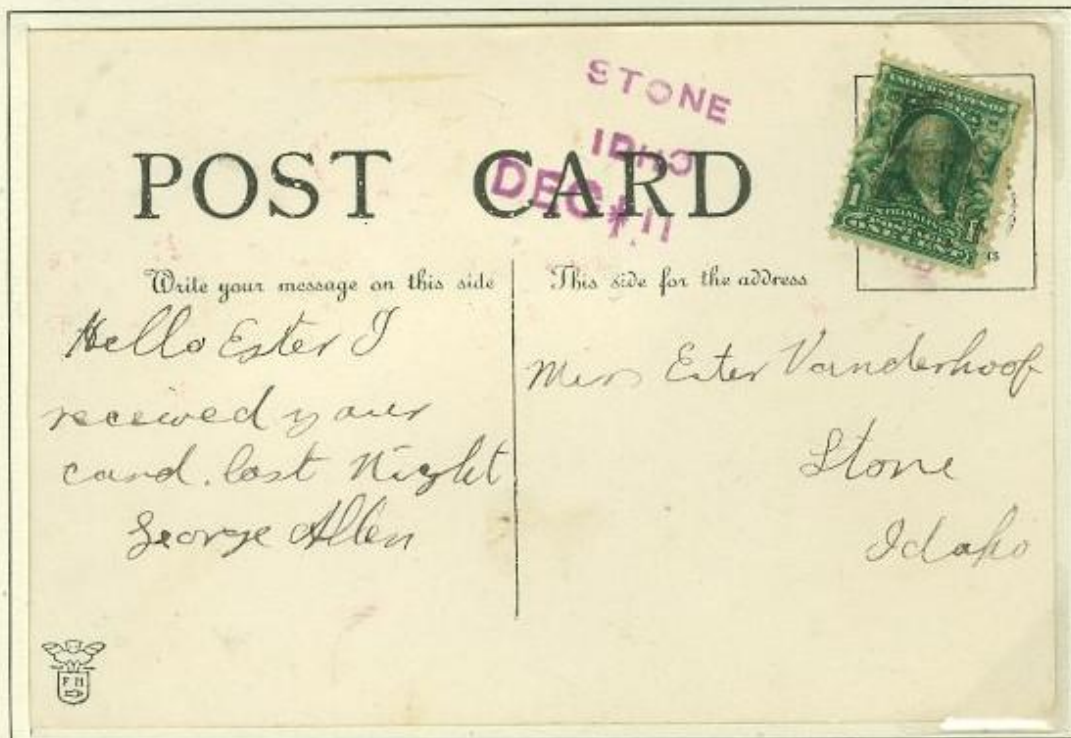 STONE
IDHO
DEC * 11
POST CARD
UNITED STATES OF
1 1
ONE CENT
Write your message on this side
This side for the address
Hello Ester I
received your
card. last Night
George Allen
Miss Ester Vanderhoof
Stone
Idaho
F H